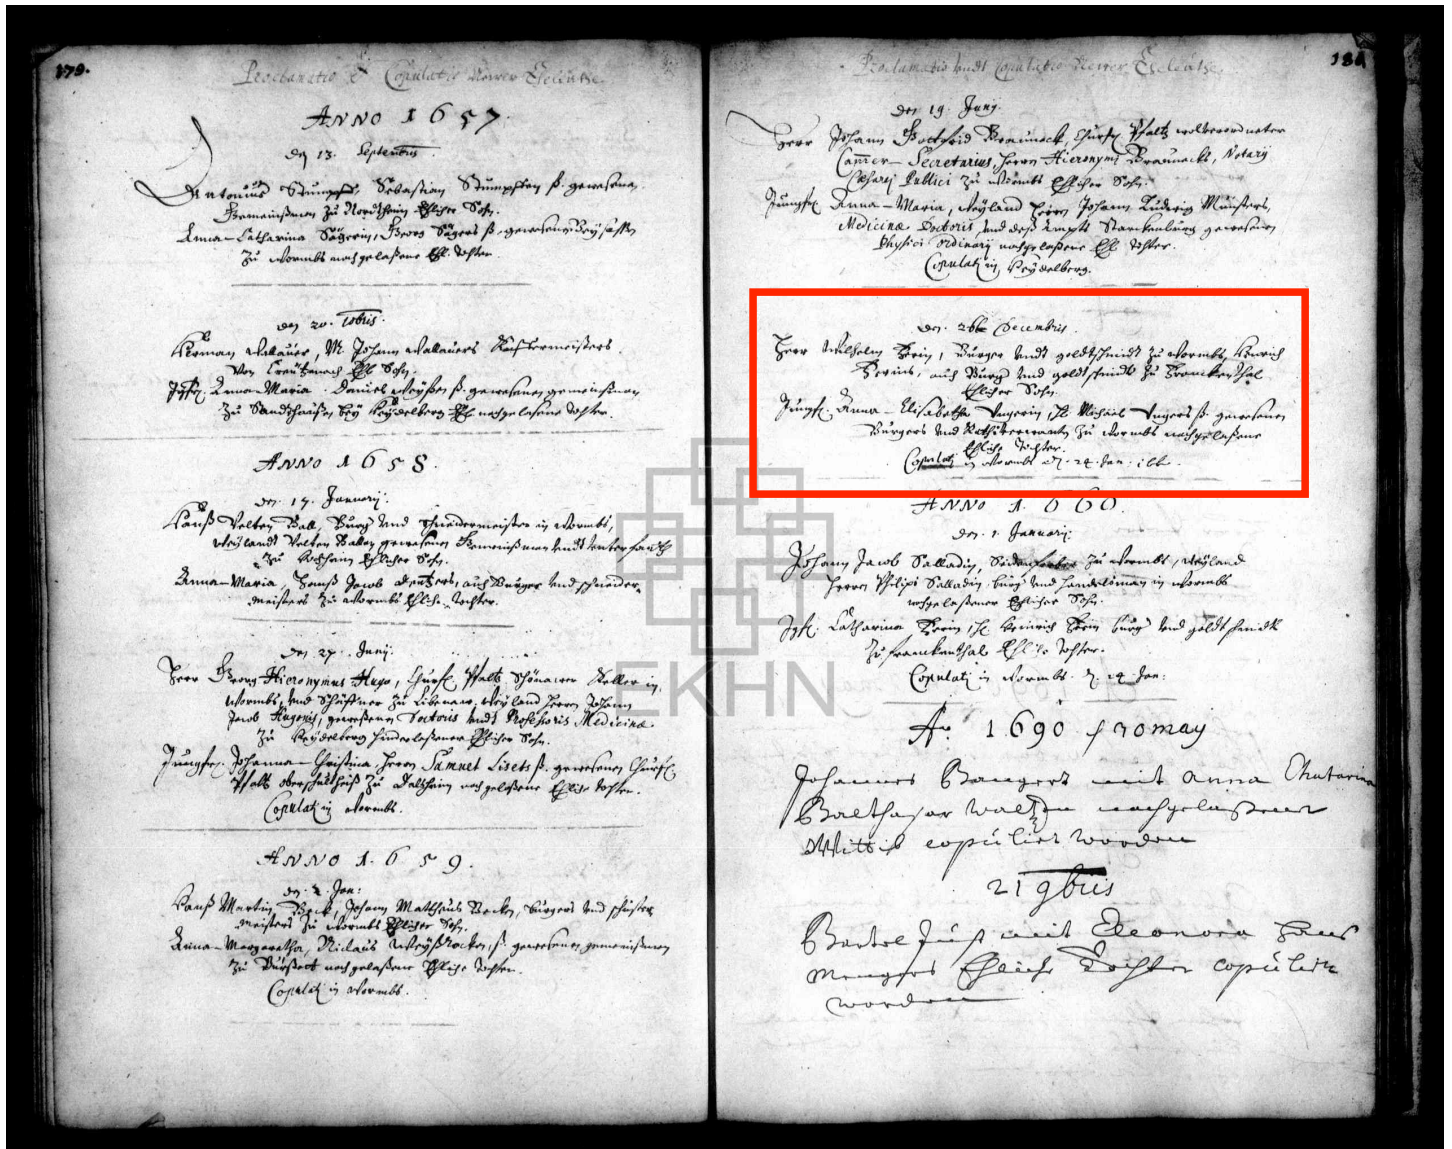 179.
Proclamatio et Copulatio Newer Eheleuthe.
ANNO 1657.
den 13. Septembris.
Antonius Stumpff, Sebastian Stumpffen s. gewesenen
Gemeinßman zu Nordtheim Ehlicher Sohn.
Anna-Catharina Sägerin, Georg Sägers s. gewesenen Beysassen
zu Wormbs nachgelaßene Ehl. Tochter.
den 20. 
Herman Wallauer, M. Johann Wallauers
von Creutzenach Ehl. Sohn.
Jgfr. Anna-Maria. Daniel s. gewesenen gemeinßman
zu Sandthaußen bey Heydelberg Ehl. nachgelaßene Tochter.
ANNO 1658.
den 17. Januarij.
Hanß Velten Ball, Burger Vnd Schneidermeister in Wormbs,
Weylandt Velten Ballen gewesenen Gemeinßman Vndt
zu Ehlicher Sohn.
Anna-Maria, Hanß Jacob auch Burger Vnd Schneider-
meisters zu Wormbs Ehliche Tochter.
den 27. Junij.
Herr Georg Hieronymus Hugo, Churf. Pfaltz Schönawer Keller in
Wormbs, Vnd Schaffner zu Liebenaw, Weyland Herrn Johann
Jacob Hugonis, gewesenen Doctoris Vndt Professoris Medicinæ
zu Heydelberg hinderlaßener Ehlicher Sohn.
Jungfr. Johanna-Christina, Herrn Samuel Lisets s. gewesenen Churf.
Pfaltz oberschultheiß zu nachgelaßene Ehliche Tochter.
Copulati in Wormbs.
ANNO 1659.
den 2. Jan:
Hanß Martin Beck, Johann Matthäus Becken, Burgers Vnd Schuster
meisters zu Wormbs Ehlicher Sohn.
Anna-Margaretha, Niclaus s. gewesenen gemeinßman
zu nachgelaßene Ehliche Tochter.
Copulati in Wormbs.
Proclamatio Vndt Copulatio Newer Eheleuthe.
180.
den 19. Junij.
Herr Johann Gottfrid Brauneck, Churf. Pfaltz wolverordneter
Cammer-Secretarius, Herrn Hieronymi Braunecks, Notarij
Cæsarej Publici zu Wormbs Ehlicher Sohn.
Jungfr. Anna-Maria, Weyland Herrn Johann Ludwig Münsters,
Medicinæ Doctoris, Vnd deß Ampts Starckenburg gewesenen
Physici ordinarij nachgelaßene Ehl. Tochter.
Copulati in Heydelberg.
den. 26 Decembris.
Herr Wilhelm Serin, Burger Vndt goldtschmidt zu Wormbs, Henrich
Serins, auch Burger Vnd goldtschmidt zu Franckenthal
Ehlicher Sohn.
Jungfr. Anna-Elisabetha Vngerin, H. Michael Vngers s. gewesenen
Burgers Vnd Rathsverwanten zu Wormbs nachgelaßene
Ehliche Tochter.
Copulati in Wormbs d. 24. Jan.
ANNO 1660.
den. 1. Januarij.
Johann Jacob Salladin, zu Wormbs, Weyland
Herrn Philips Salladin, burger Vnd Handelsman in Wormbs
nachgelaßener Ehlicher Sohn.
Jgfr. Catharina Serin, H. Heinrich Serin burger Vnd goldtschmidt
zu Franckenthal Ehliche Tochter.
Copulati in Wormbs. d. 24 Jan:
Ao 1690 may
Johannes Bangert mit Anna Chatarina
Balthasar nachgelaßener
Wittib copuliert worden
21 9bris
Bartel Just mit Eleonora Hans
Mengers Ehliche Dochter copuliert
worden
EKHN